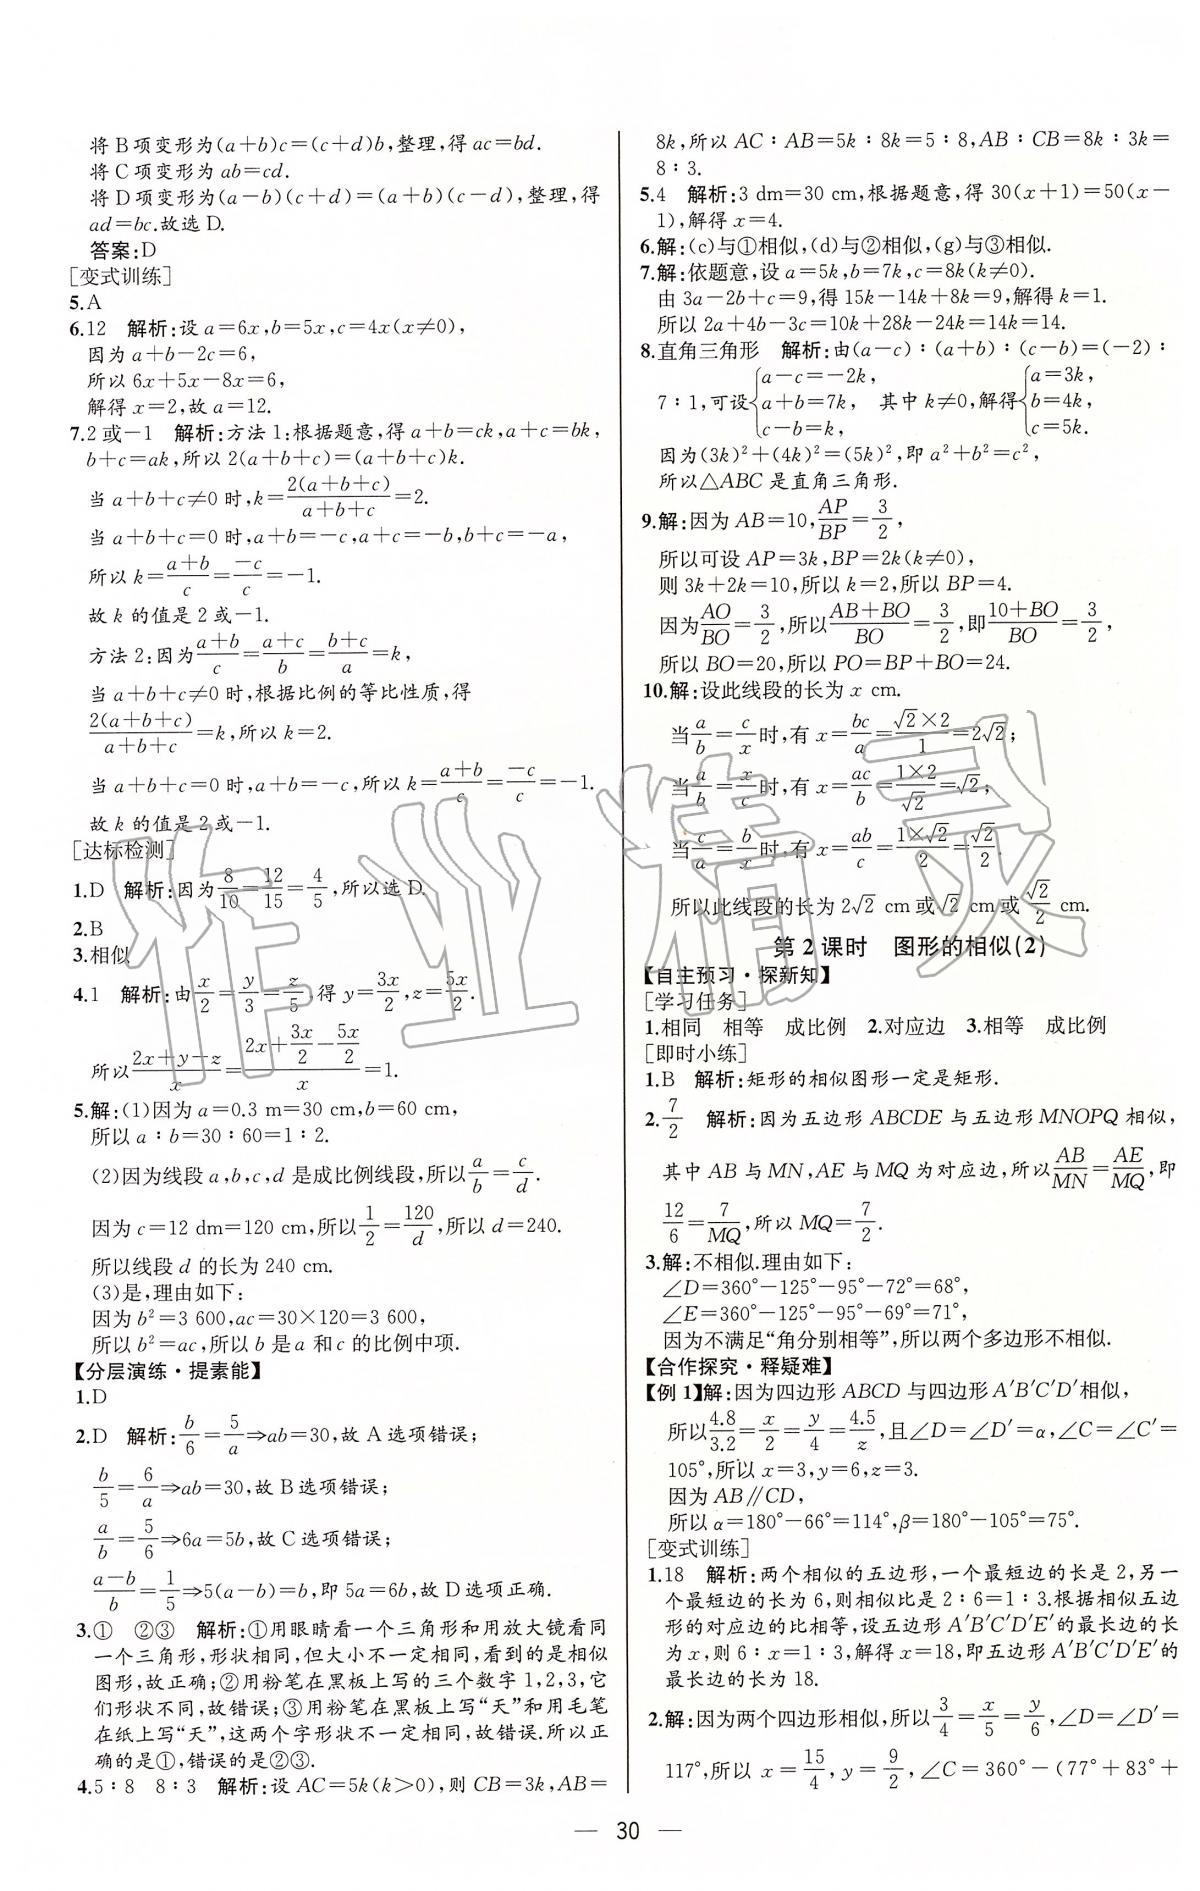 将B项变形为(a+b)c=(c+d)b,整理,得ac=bd.
将C项变形为ab=cd.
将D项变形为(a-b)(c+d)=(a+b)(c-d),整理,得
ad=bc.故选D.
答案:D
[变式训练]
5.A
6.12 解析:设a=6x,b=5x,c=4x(x≠0),
因为a+b-2c=6,
所以6x+5x-8x=6,
解得x=2,故a=12.
7.2或-1 解析:方法1:根据题意,得a+b=ck,a+c=bk,
b+c=ak,所以2(a+b+c)=(a+b+c)k.
当a+b+c≠0时,k=2(a+b+c)/(a+b+c)=2.
当a+b+c=0时,a+b=-c,a+c=-b,b+c=-a,
所以k=(a+b)/c=-c/c=-1.
故k的值是2或-1.
方法2:因为(a+b)/c=(a+c)/b=(b+c)/a=k,
当a+b+c≠0时,根据比例的等比性质,得
2(a+b+c)/(a+b+c)=k,所以k=2.
当a+b+c=0时,a+b=-c,所以k=(a+b)/c=-c/c=-1.
故k的值是2或-1.
[达标检测]
1.D 解析:因为8/10=12/15=4/5,所以选D.
2.B
3.相似
4.1 解析:由x/2=y/3=z/5,得y=3x/2,z=5x/2.
所以(2x+y-z)/x=(2x+3x/2-5x/2)/x=1.
5.解:(1)因为a=0.3 m=30 cm,b=60 cm,
所以a:b=30:60=1:2.
(2)因为线段a,b,c,d是成比例线段,所以a/b=c/d.
因为c=12 dm=120 cm,所以1/2=120/d,所以d=240.
所以线段d的长为240 cm.
(3)是,理由如下:
因为b²=3 600,ac=30×120=3 600,
所以b²=ac,所以b是a和c的比例中项.
【分层演练·提素能】
1.D
2.D 解析:b/6=5/a⇒ab=30,故A选项错误;
b/5=6/a⇒ab=30,故B选项错误;
a/b=5/6⇒6a=5b,故C选项错误;
(a-b)/b=1/5⇒5(a-b)=b,即5a=6b,故D选项正确.
3.① ②③ 解析:①用眼睛看一个三角形和用放大镜看同
一个三角形,形状相同,但大小不一定相同,看到的是相似
图形,故正确;②用粉笔在黑板上写的三个数字1,2,3,它
们形状不同,故错误;③用粉笔在黑板上写“天”和用毛笔
在纸上写“天”,这两个字形状不一定相同,故错误.所以正
确的是①,错误的是②③.
4.5:8 8:3 解析:设AC=5k(k>0),则CB=3k,AB=
8k,所以AC:AB=5k:8k=5:8,AB:CB=8k:3k=
8:3.
5.4 解析:3 dm=30 cm,根据题意,得30(x+1)=50(x-
1),解得x=4.
6.解:(c)与①相似,(d)与②相似,(g)与③相似.
7.解:依题意,设a=5k,b=7k,c=8k(k≠0).
由3a-2b+c=9,得15k-14k+8k=9,解得k=1.
所以2a+4b-3c=10k+28k-24k=14k=14.
8.直角三角形 解析:由(a-c):(a+b):(c-b)=(-2):
7:1,可设{a-c=-2k, a+b=7k, c-b=k, 其中k≠0,解得{a=3k, b=4k, c=5k.
因为(3k)²+(4k)²=(5k)²,即a²+b²=c²,
所以△ABC是直角三角形.
9.解:因为AB=10,AP/BP=3/2,
所以可设AP=3k,BP=2k(k≠0),
则3k+2k=10,所以k=2,所以BP=4.
因为AO/BO=3/2,所以(AB+BO)/BO=3/2,即(10+BO)/BO=3/2,
所以BO=20,所以PO=BP+BO=24.
10.解:设此线段的长为x cm.
当a/b=c/x时,有x=bc/a=(√2×2)/1=2√2;
当a/b=x/c时,有x=ac/b=(1×2)/√2=√2;
当c/a=b/x时,有x=ab/c=(1×√2)/2=√2/2.
所以此线段的长为2√2 cm或√2 cm或√2/2 cm.
第2课时 图形的相似(2)
【自主预习·探新知】
[学习任务]
1.相同 相等 成比例 2.对应边 3.相等 成比例
[即时小练]
1.B 解析:矩形的相似图形一定是矩形.
2.7/2 解析:因为五边形ABCDE与五边形MNOPQ相似,
其中AB与MN,AE与MQ为对应边,所以AB/MN=AE/MQ,即
12/6=7/MQ,所以MQ=7/2.
3.解:不相似.理由如下:
∠D=360°-125°-95°-72°=68°,
∠E=360°-125°-95°-69°=71°,
因为不满足“角分别相等”,所以两个多边形不相似.
【合作探究·释疑难】
【例1】解:因为四边形ABCD与四边形A′B′C′D′相似,
所以4.8/3.2=x/2=y/4=4.5/z,且∠D=∠D′=α,∠C=∠C′=
105°,所以x=3,y=6,z=3.
因为AB∥CD,
所以α=180°-66°=114°,β=180°-105°=75°.
[变式训练]
1.18 解析:两个相似的五边形,一个最短边的长是2,另一
个最短边的长为6,则相似比是2:6=1:3.根据相似五边
形的对应边的比相等,设五边形A′B′C′D′E′的最长边的长
为x,则6:x=1:3,解得x=18,即五边形A′B′C′D′E′的
最长边的长为18.
2.解:因为两个四边形相似,所以3/4=x/5=y/6,∠D=∠D′=
117°,所以x=15/4,y=9/2,∠C=360°-(77°+83°+
30
作业精灵